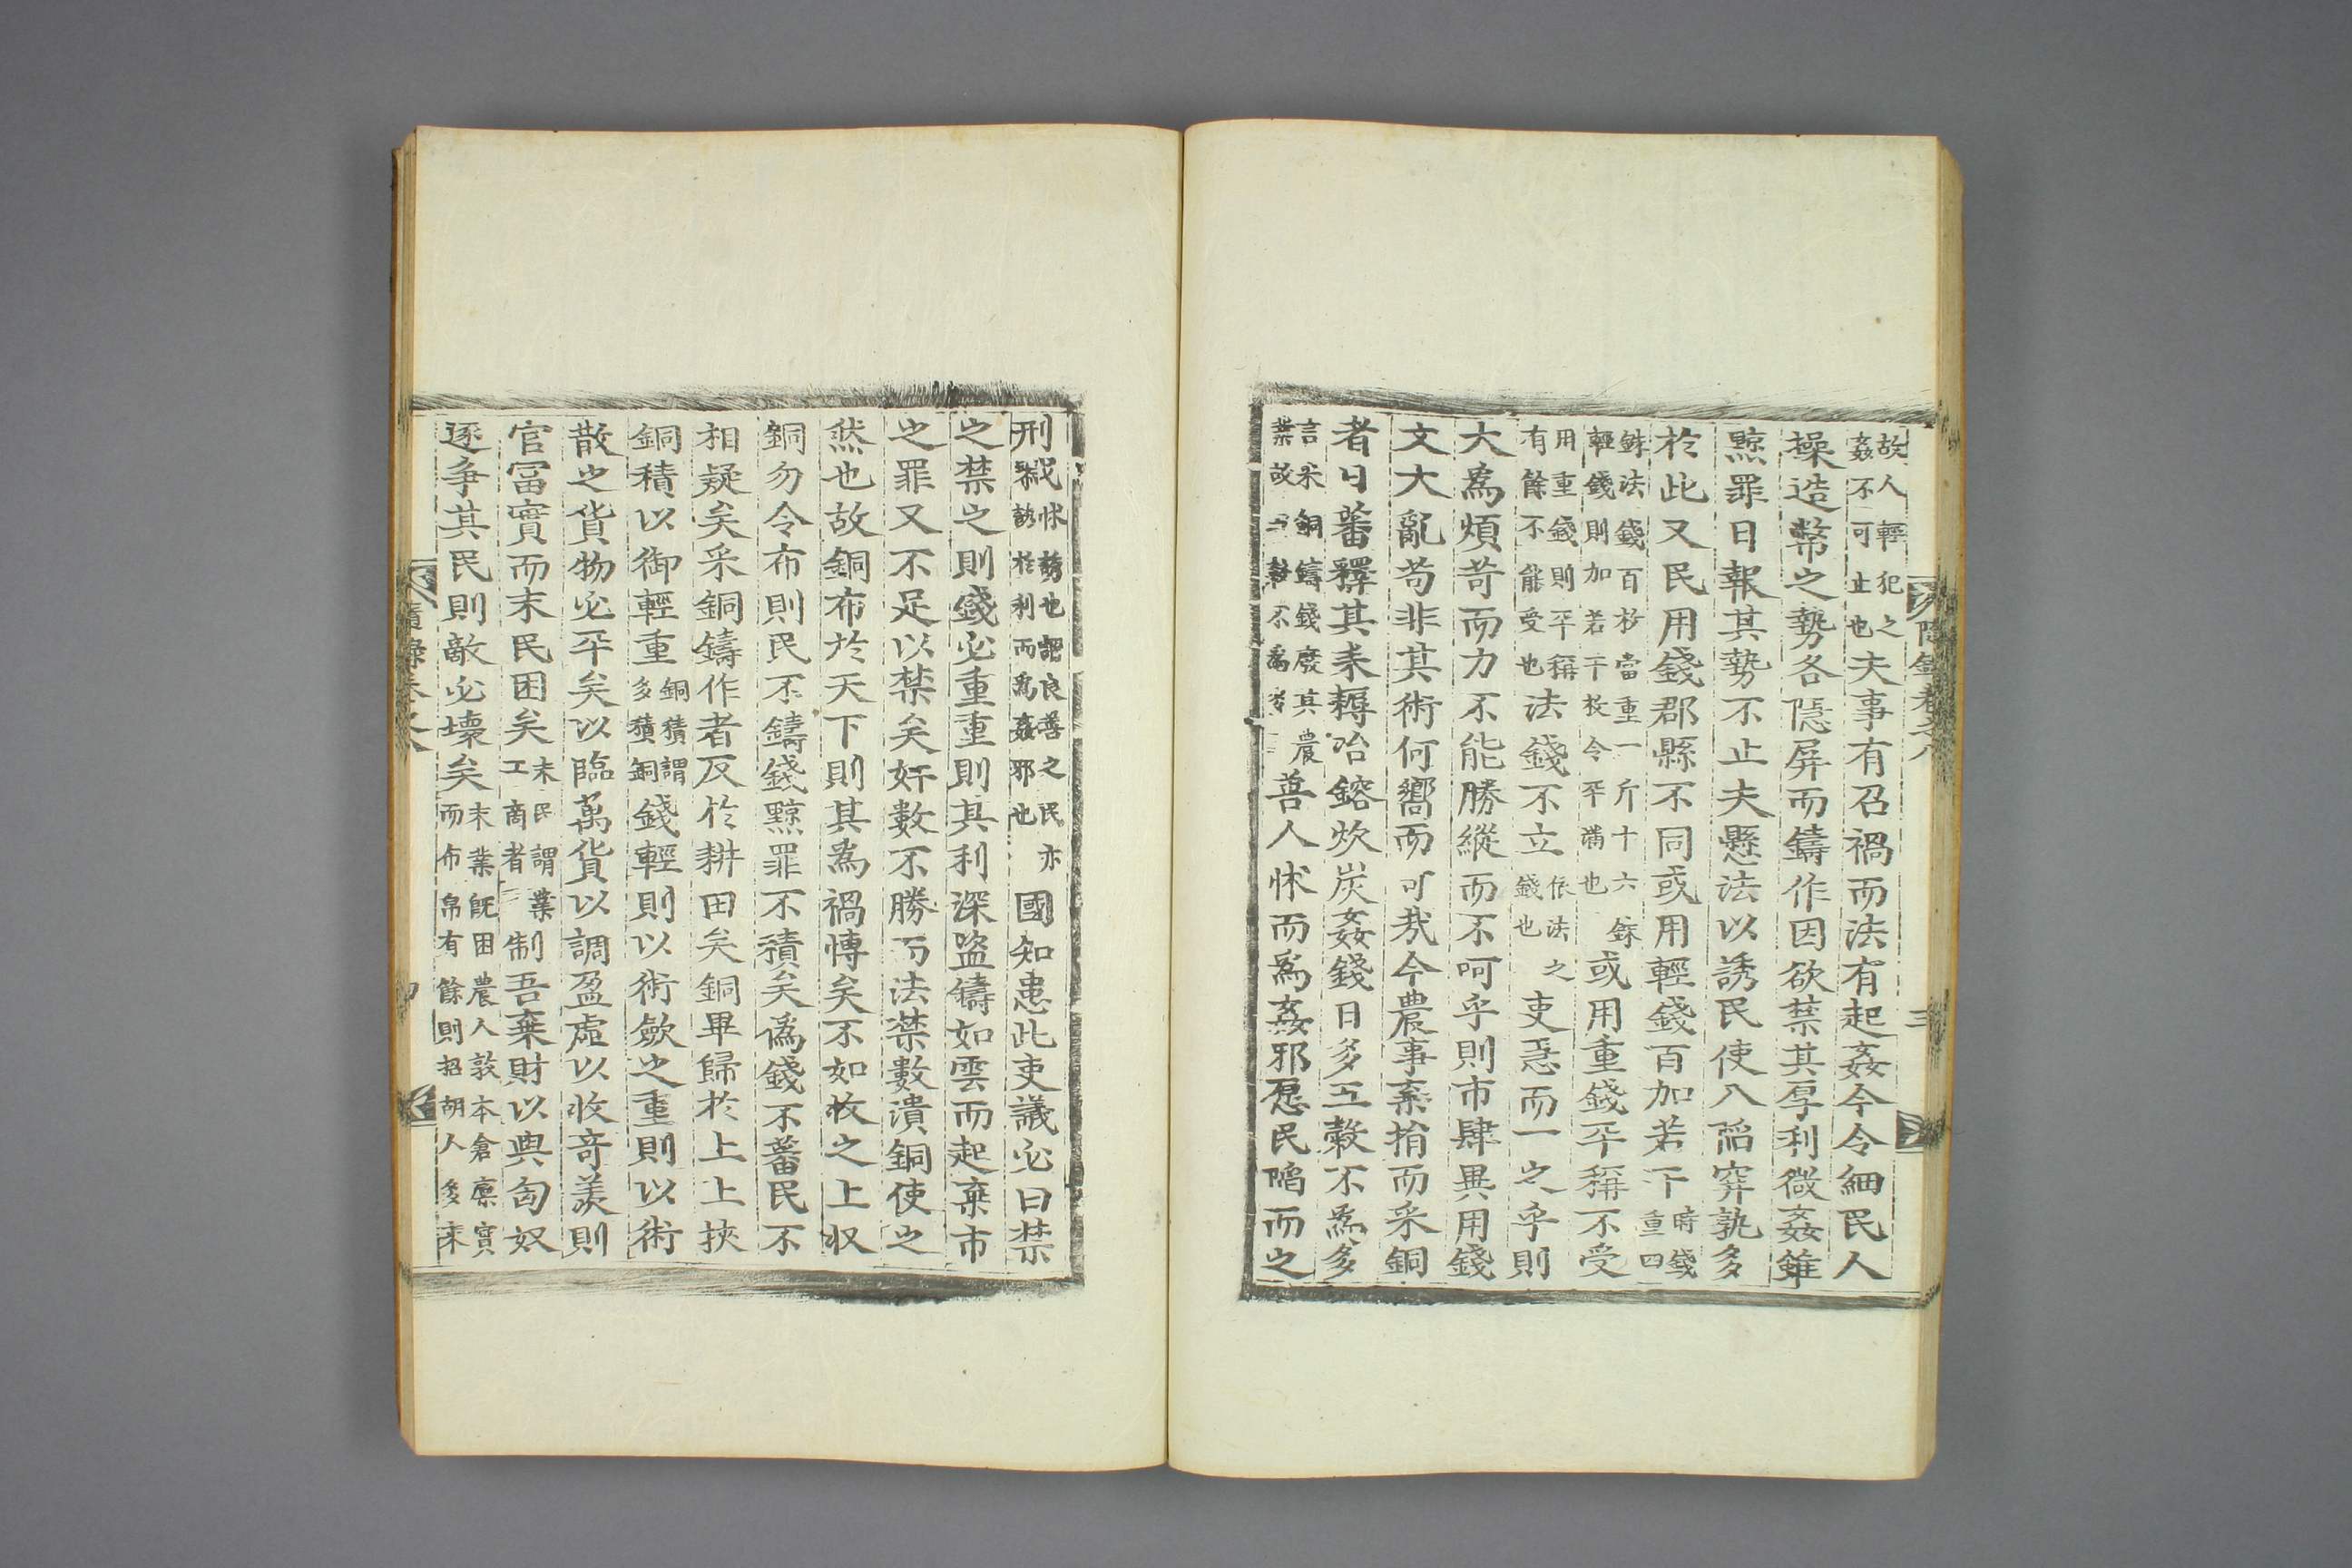 故人輕犯之姦不可止也夫事有召禍而法有起姦今令細民人
操造幣之勢各隱屏而鑄作因欲禁其厚利微姦雖
黥罪日報其勢不止夫懸法以誘民使入陷穽孰多
於此又民用錢郡縣不同或用輕錢百加若干時錢重四
銖法錢百枚當重一斤十六銖輕錢則加若干枚令平滿也或用重錢平稱不受
用重錢則平稱有餘不能受也法錢不立依法之錢也吏急而一之乎則
大為煩苛而力不能勝縱而不呵乎則市肆異用錢
文大亂苟非其術何嚮而可哉今農事棄捐而采銅
者日蕃釋其耒耨冶鎔炊炭姦錢日多五穀不為多
言采銅鑄錢廢其農業故五穀不為多善人怵而為姦邪愿民陷而之
刑戮怵誘也謂良善之民亦誘於利而為姦邪也國知患此吏議必曰禁
之禁之則錢必重重則其利深盜鑄如雲而起棄市
之罪又不足以禁矣奸數不勝而法禁數潰銅使之
然也故銅布於天下則其為禍博矣不如收之上收
銅勿令布則民不鑄錢黥罪不積矣偽錢不蕃民不
相疑矣采銅鑄作者反於耕田矣銅畢歸於上上挾
銅積以御輕重銅積謂多積銅錢輕則以術斂之重則以術
散之貨物必平矣以臨萬貨以調盈虛以收奇羨則
官富實而末民困矣末民謂業工商者制吾棄財以與匈奴
逐爭其民則敵必壞矣末業既困農人敦本倉廩實而布帛有餘則招胡人多來